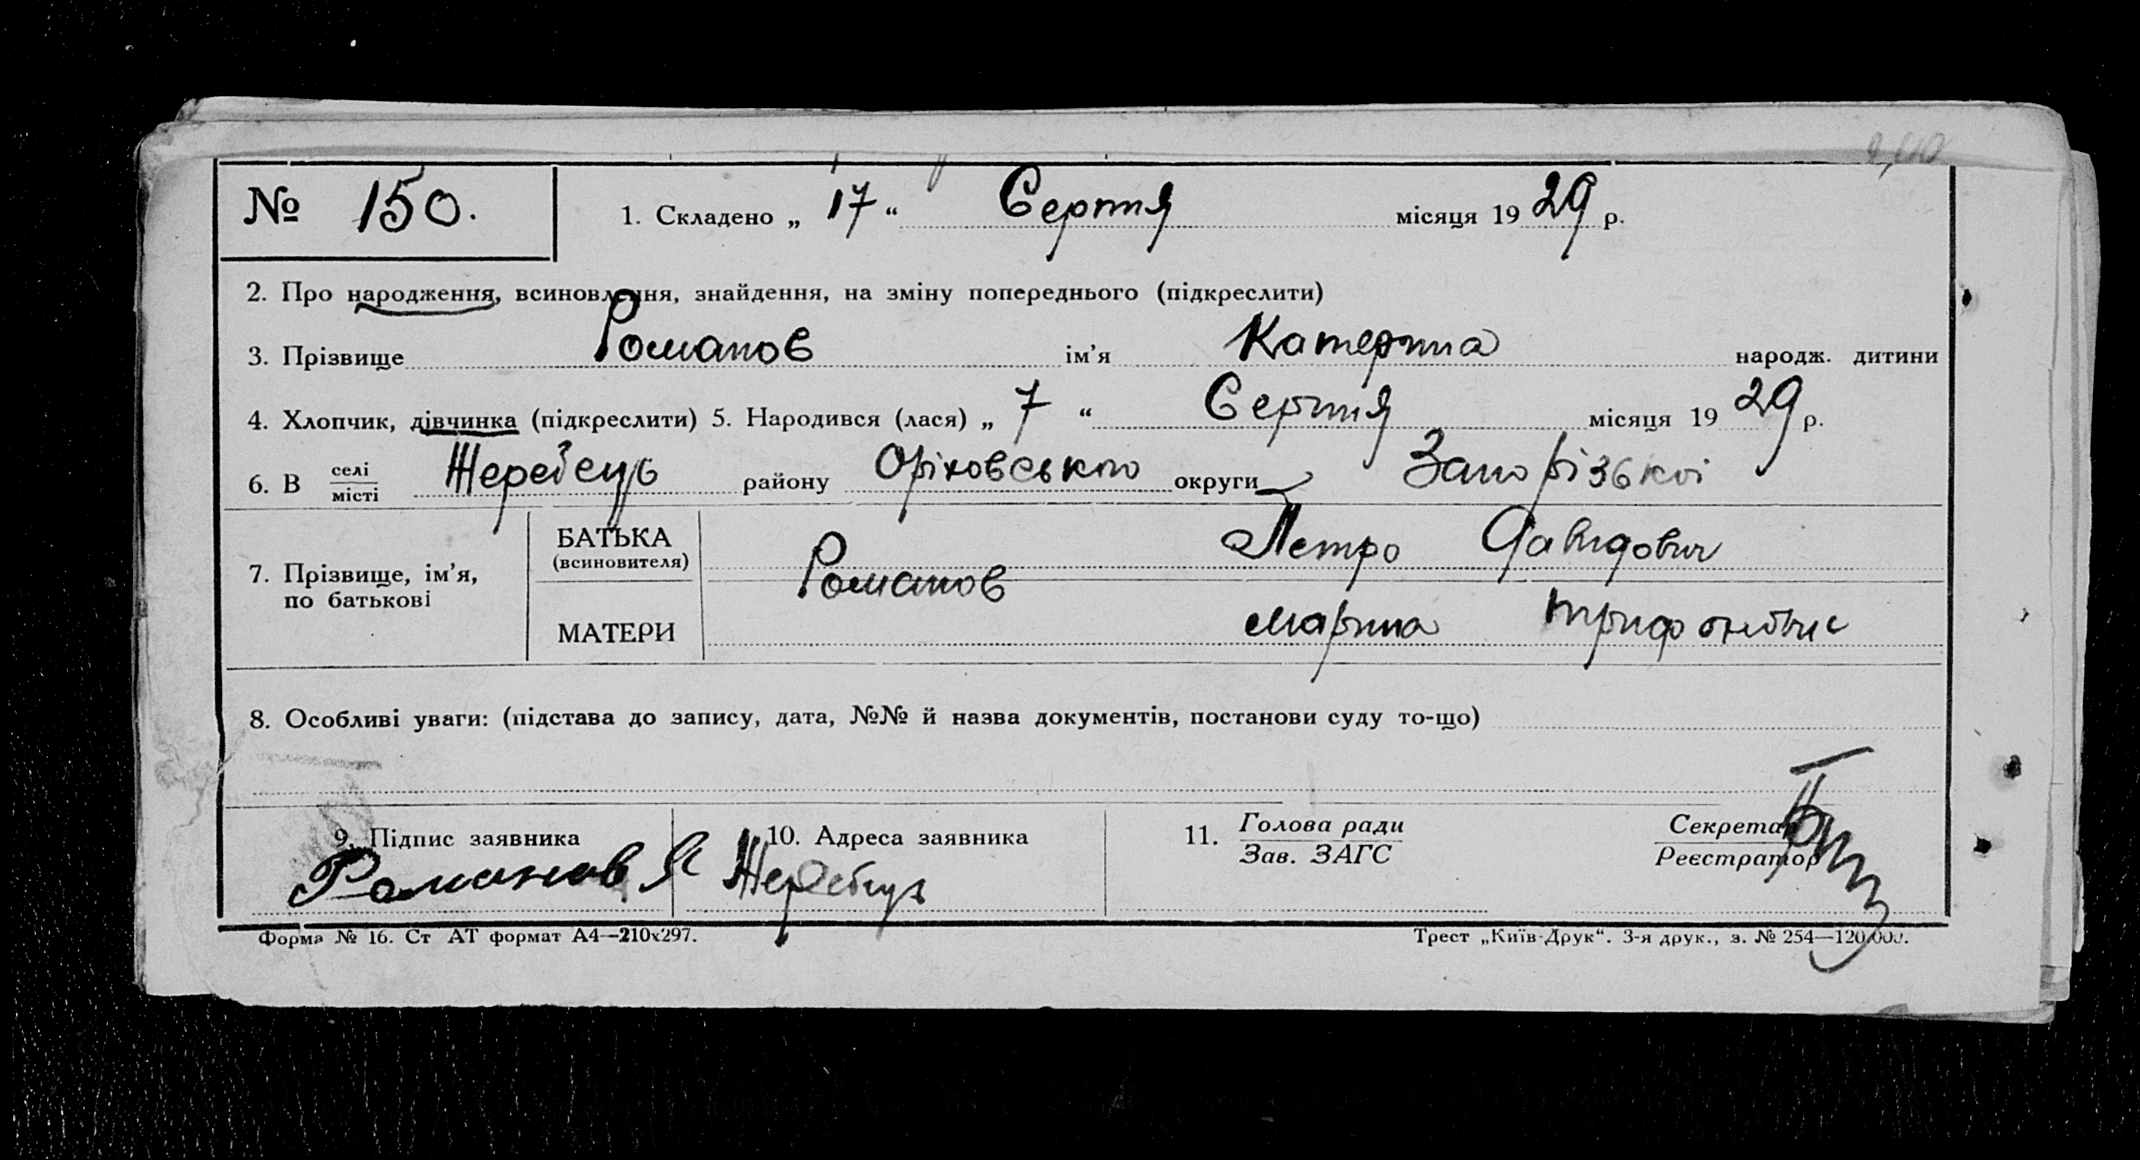 № 150. 1. Складено „ 17 “ Серпня місяця 1929 р.
2. Про народження, всиновлення, знайдення, на зміну попереднього (підкреслити)
3. Прізвище Романов ім’я Катерина народж. дитини
4. Хлопчик, дівчинка (підкреслити) 5. Народився (лася) „ 7 “ Серпня місяця 1929 р.
6. В селі Жеребець району Оріховського округи Запорізької
місті
БАТЬКА Петро Давидович
(всиновителя)
7. Прізвище, ім’я,
по батькові
Романов
МАТЕРИ Марина
8. Особливі уваги: (підстава до запису, дата, №№ й назва документів, постанови суду то-що)
9. Підпис заявника 10. Адреса заявника 11. Голова ради Секретар
Зав. ЗАГС Реєстратор
Романов Жеребець
Форма № 16. Ст АТ формат А4—210х297. Трест „Київ-Друк“. 3-я друк., з. № 254—120.000.